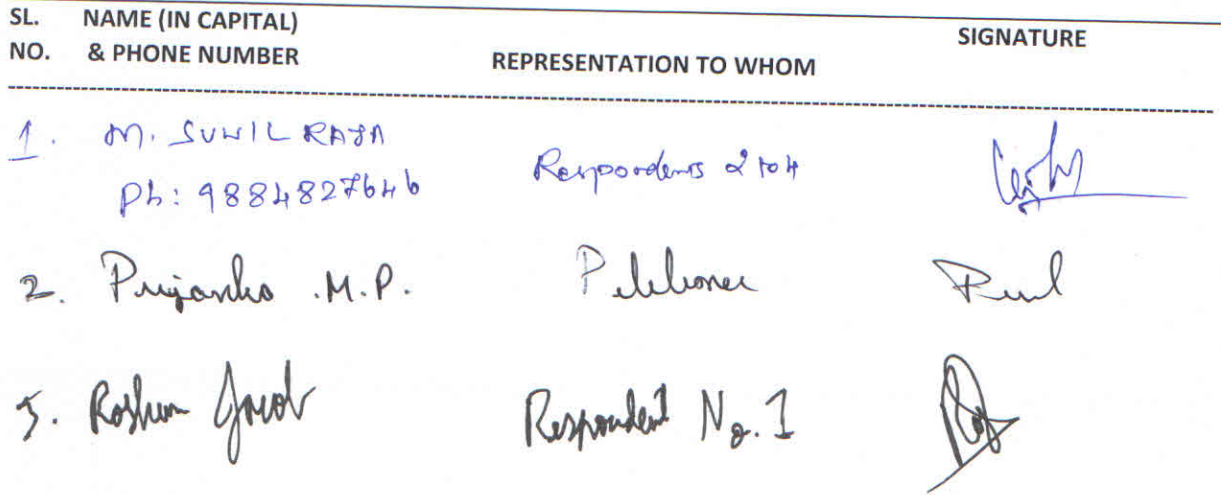 SL. NAME (IN CAPITAL)
NO. & PHONE NUMBER REPRESENTATION TO WHOM SIGNATURE
1. M. SUNIL RAJA
Ph: 9884827646 Respondents 2 to 4
2. Priyanka .M.P. Petitioner
3. Roshan Jacob Respondent No. 1